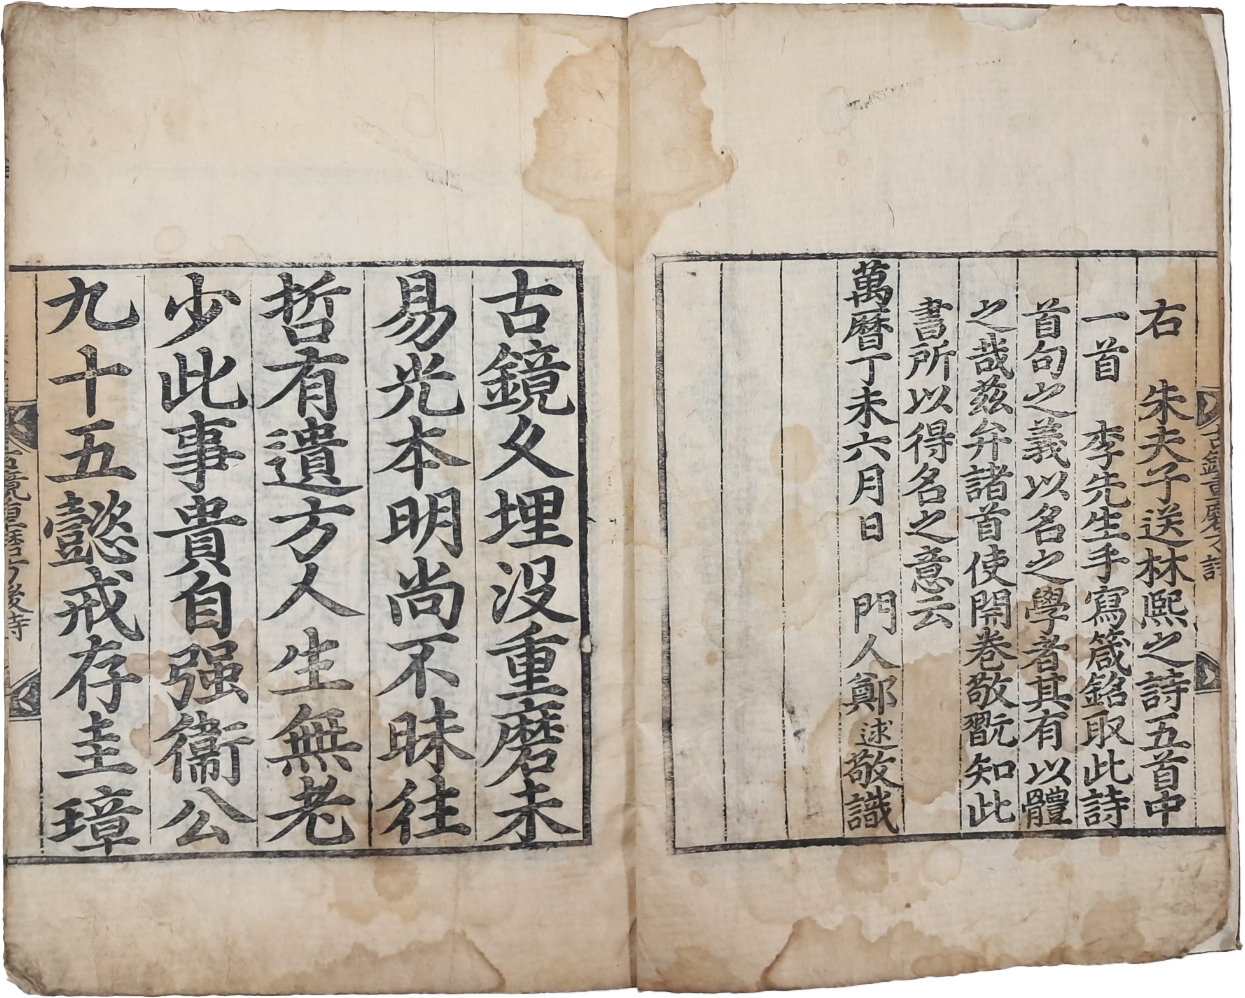 右 朱夫子送林熙之詩五首中
一首 李先生手寫箴銘取此詩
首句之義以名之學者其有以體
之哉茲弁諸首使開卷敬翫知此
書所以得名之意云
萬曆丁未六月日 門人鄭逑敬識
古鏡久埋沒重磨未
易光本明尚不昧往
哲有遺方人生無老
少此事貴自强衞公
九十五懿戒存圭璋
古鏡重磨方後詩